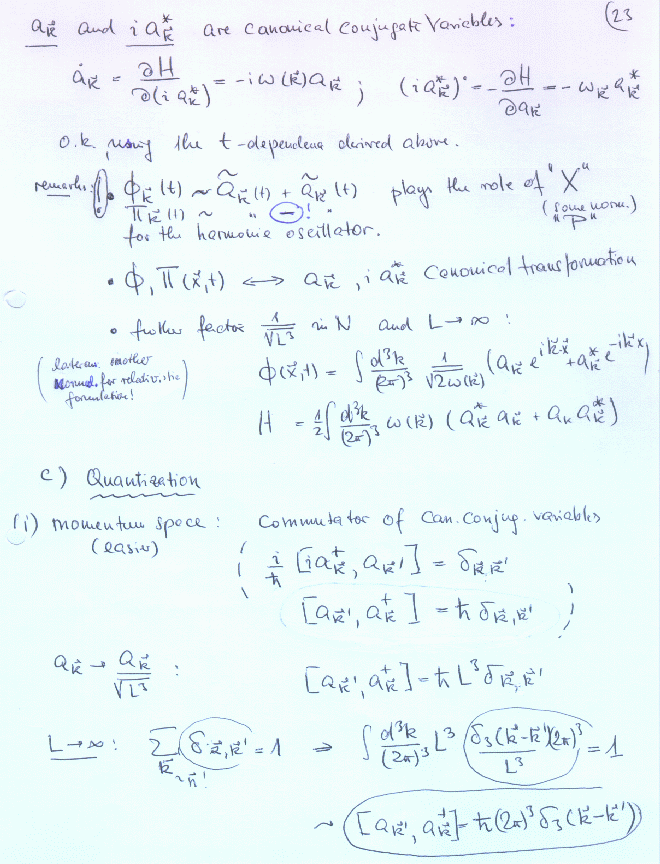 (23
a_k⃗ and i a*_k⃗ are canonical conjugate variables:
ȧ_k⃗ = ∂H/∂(i a*_k⃗) = -iω(k⃗)a_k⃗ ; (i a*_k⃗)˙ = -∂H/∂a_k⃗ = -ω_k⃗ a*_k⃗
o.k. using the t-dependence derived above.
remarks: • ϕ_k⃗(t) ~ ã_k⃗(t) + ã_k⃗(t) plays the role of "X"
Π_k⃗(t) ~ " (-)! " (some norm.) "P"
for the harmonic oscillator.
• ϕ, Π(x⃗,t) ⟷ a_k⃗, i a*_k⃗ canonical transformation
• further factor 1/√L³ in N and L→∞ :
(later on another normal. for relativistic formulation!)
ϕ(x⃗,t) = ∫ d³k/(2π)³ 1/√2ω(k⃗) (a_k⃗ e^{ik⃗·x⃗} + a*_k⃗ e^{-ik⃗x})
H = ½∫ d³k/(2π)³ ω(k⃗) (a*_k⃗ a_k⃗ + a_k a*_k⃗)
c) Quantization
(i) momentum space : Commutator of can. conjug. variables
(easier) ( i/ħ [ia⁺_k⃗, a_k⃗'] = δ_k⃗,k⃗'
[a_k⃗', a⁺_k⃗] = ħ δ_k⃗,k⃗' )
a_k⃗ → a_k⃗/√L³ : [a_k⃗', a⁺_k⃗] = ħ L³ δ_k⃗,k⃗'
L→∞ : Σ_k⃗ δ_k⃗,k⃗' = 1 ⇒ ∫ d³k/(2π)³ L³ δ₃(k⃗-k⃗')(2π)³/L³ = 1
~ [a_k⃗', a⁺_k⃗] = ħ(2π)³ δ₃(k⃗-k⃗')